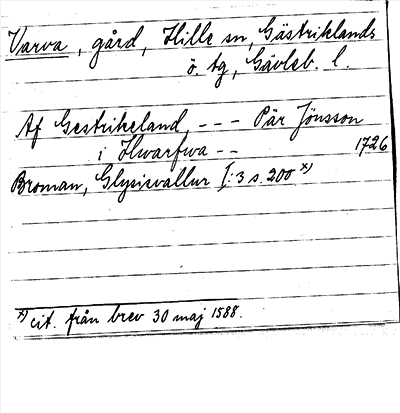 Varva, gård, Hille sn, Gästriklands
ö. tg, Gävleb. l.
Af Gestrikeland - - - Pär Jönsson
i Hwarfwa - - 1726
Broman, Glysisvallur I:3 s. 200 x)
x) cit. från brev 30 maj 1588.